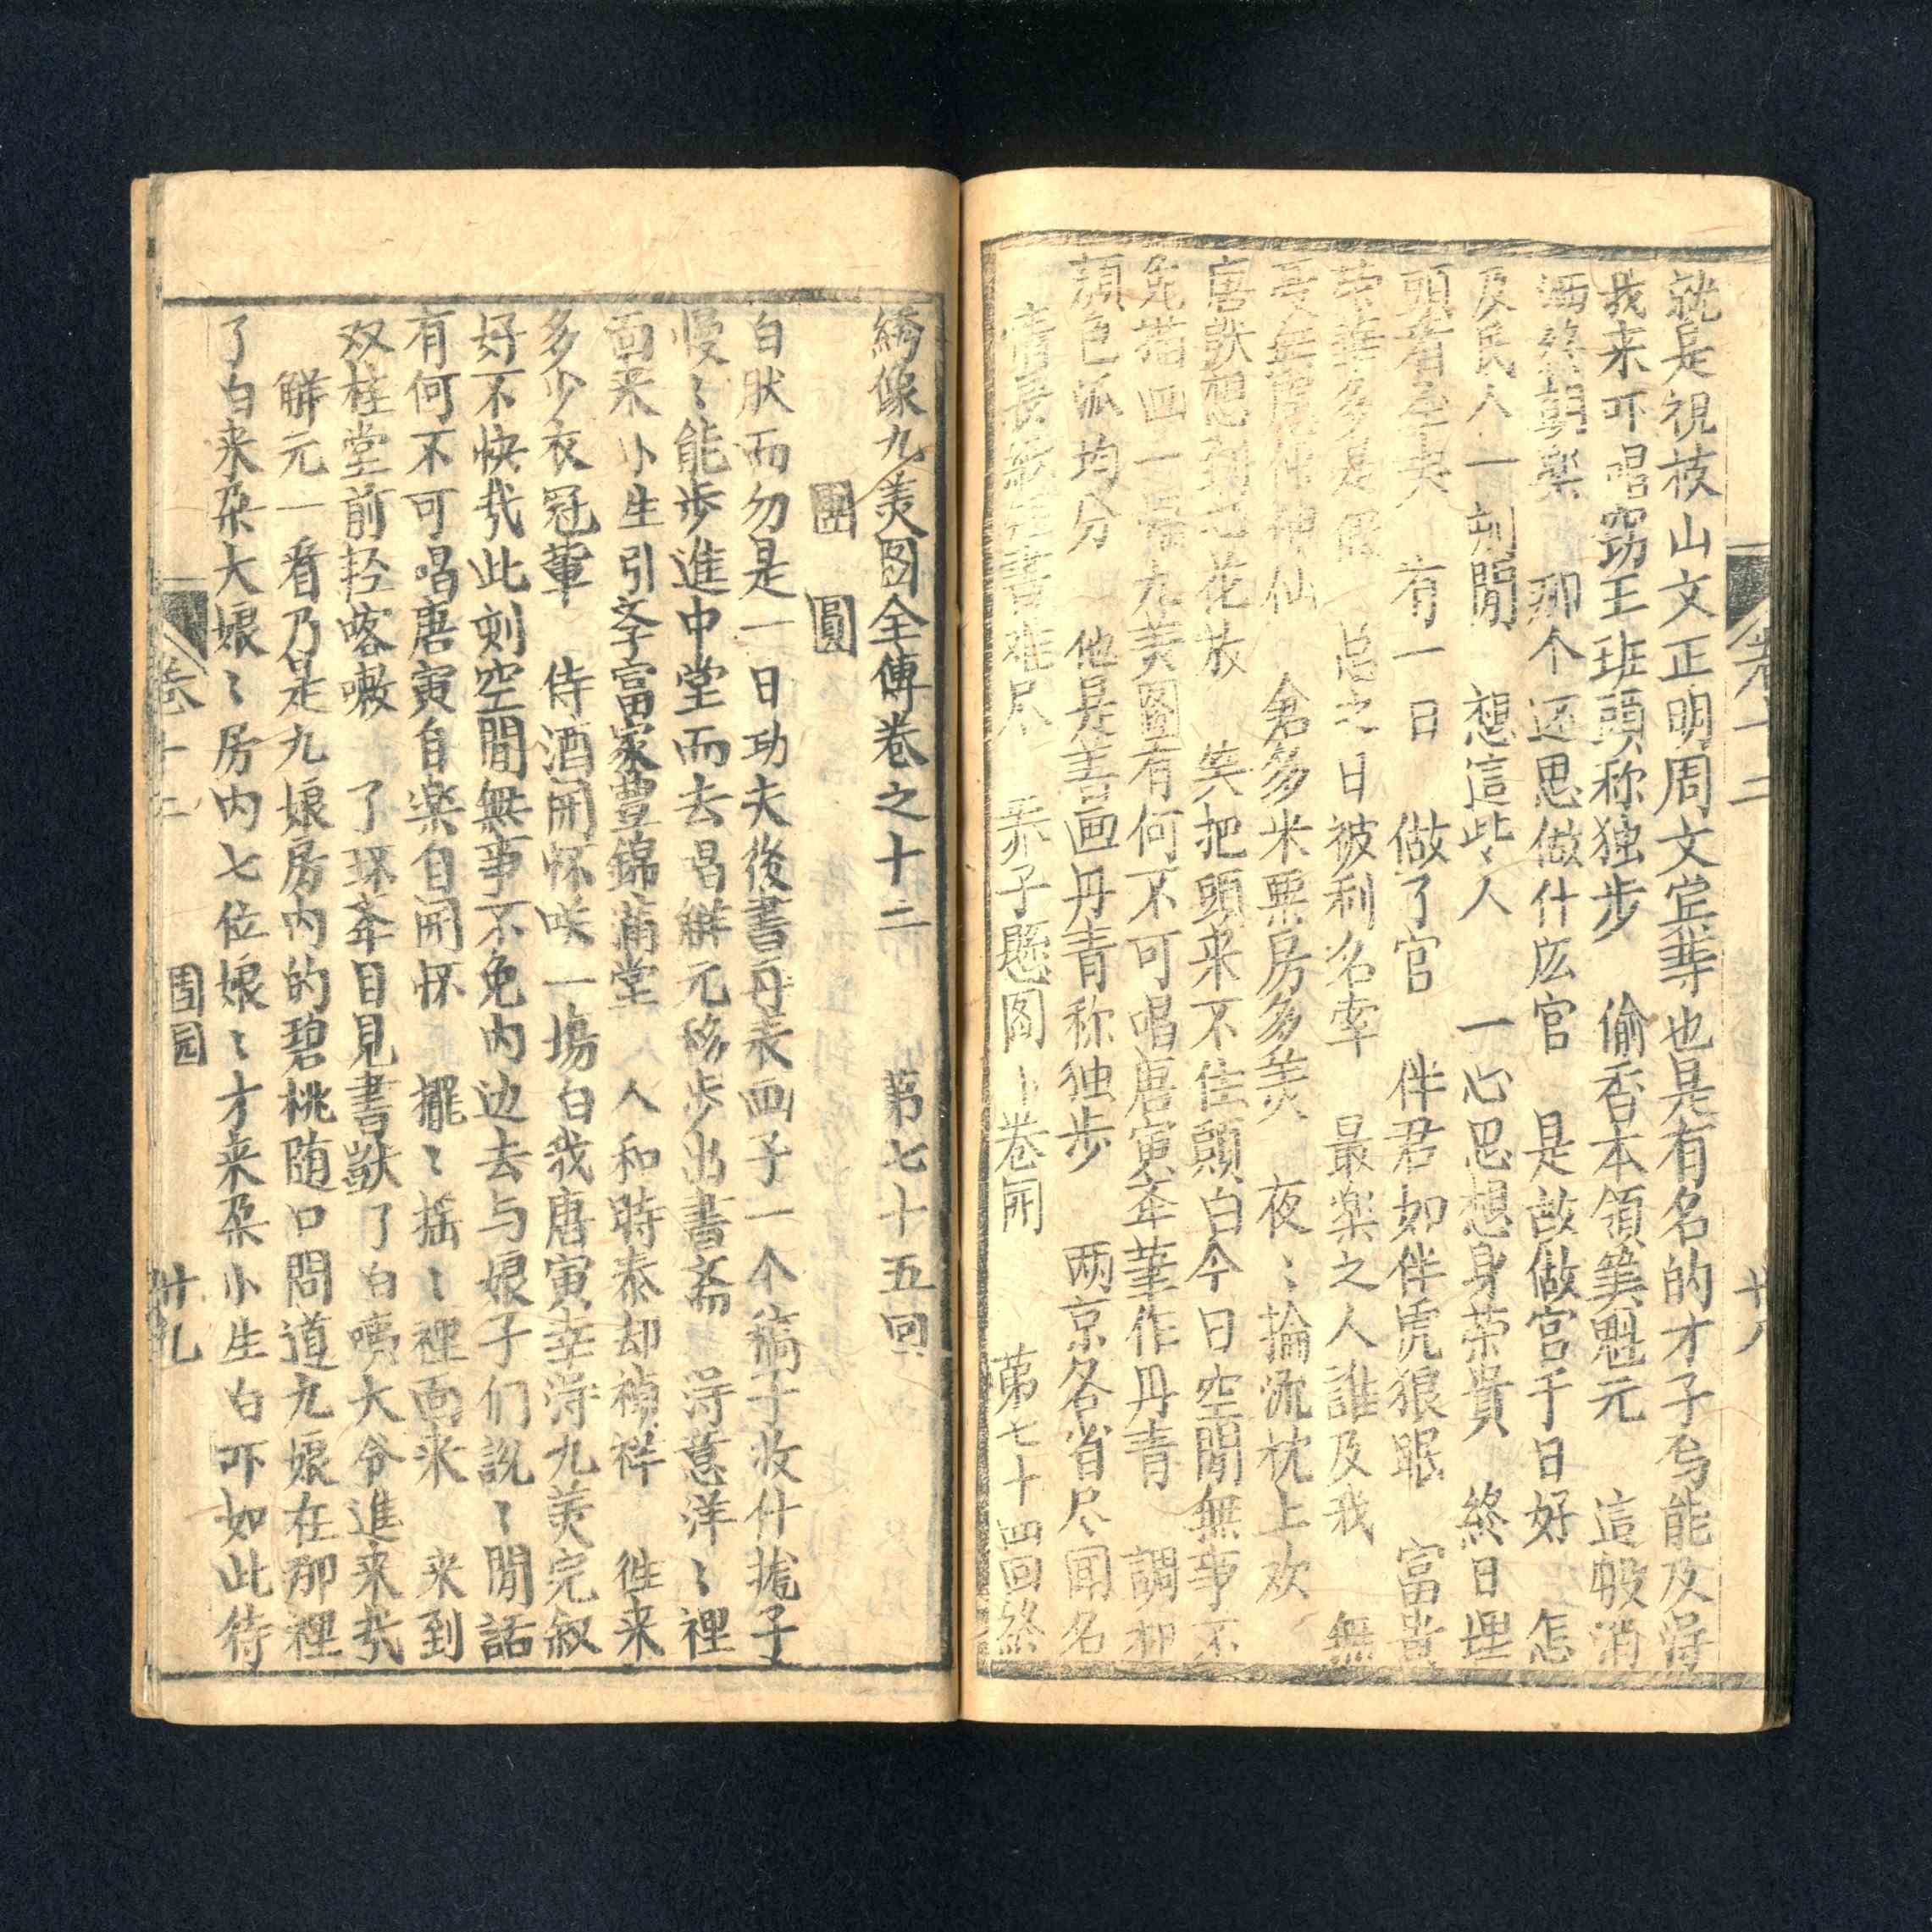 就是祝枝山文正明周文宾䓁也是有名的才子兮能及淂
我来吓唱窃玉班頭称独步　偷香本領筭魁元　這般消
洒終朝楽　那个还思做什庅官　是故做官千日好　怎
及民人一刻閒　想這些人　一心思想身荣貴　終日埋
頭看　有一日　做了官　伴君如伴虎狼眠　富貴
荣華多是假　总之日被利名牵　最楽之人誰及我　無
仙　倉多米粟房多美　夜〻掄流枕上欢
唐　想到　花放　矣把頭来不住頭白今日空閒無事不
先描画一幅九美图有何不可唱唐寅奎筆作丹青　調和
顔色派均分　他是善画丹青称独步　两京各省尽聞名
情長紙短書难尽　美子懸图卜卷開　苐七十四回終
卷十二
廿八
綉像九美图全傳卷之十二　苐七十五回
團　圓
白狀而勿是一日功夫後書再表画子一个稿子收什㧞子
慢〻能步進中堂而去唱解元移步出書斋　淂意洋〻裡
面来　小生引文字富家豊錦滿堂　人和時泰却禎祥　徃来
多少衣冠軰　侍酒開怀咲一塲白我唐寅幸淂九美完叙
好不快哉此刻空閒無事不免内边去与娘子们説〻閒話
有何不可唱唐寅自楽自開怀　擺〻摇〻裡面来　来到
双桂堂前軽咯嗽　了环奎目見書獃了白噢大爷進来哉
解元一看乃是九娘房内的碧桃随口問道九娘在那裡
了白来朶大娘〻房内七位娘〻才来朶小生白吓如此待
卷十二
團圓
廿九